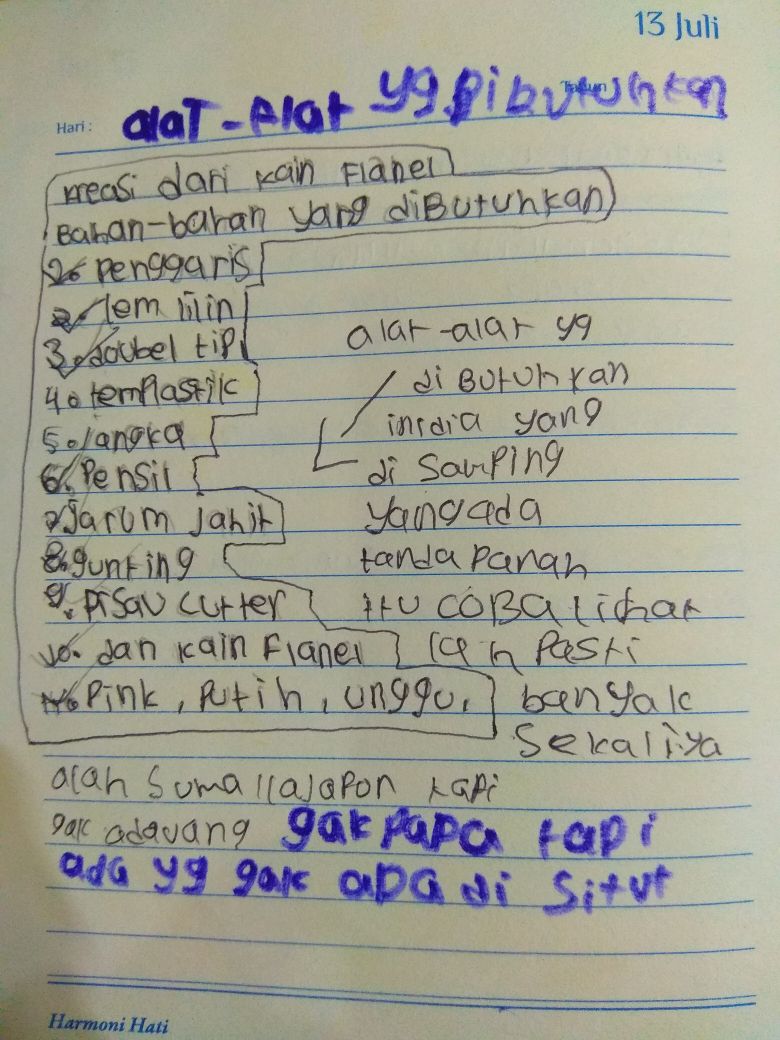 13 Juli
Hari :
Tahun
alaT-Alat yg Dibutuhkan
kreasi dari kain Flanel
Bahan-bahan yang diButuhkan
penggaris
2. lem lilin
3. doubel tip
4. lemplastik
5. Jangka
6. Pensil
7. Jarum Jahit
8. gunting
9. pisau cutter
10. dan kain Flanel
Pink, Putih, unggu,
alat-alat yg
di Butuhkan
inidia yang
di Samping
yangada
tanda Panah
itu COBa lihat
lah Pasti
banyak
Sekaliya
gak adauang gak papa tapi
ada yg gak apa di Situt
Harmoni Hati